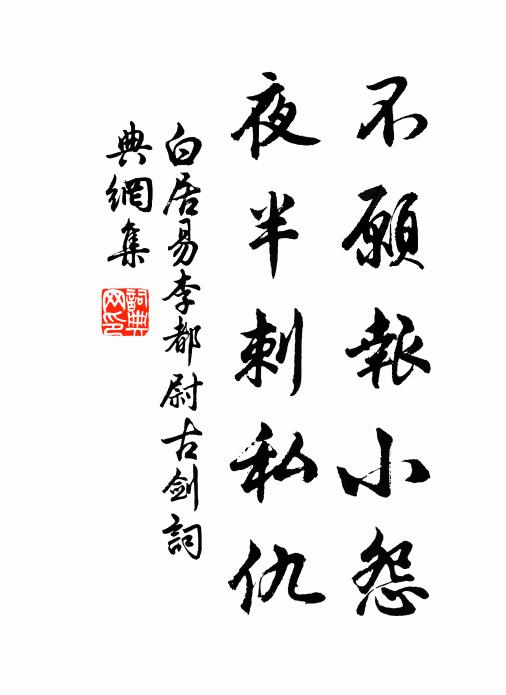 不願報小怨
夜半刺私仇
白居易李都尉古劍詞
典網集
詞典網印